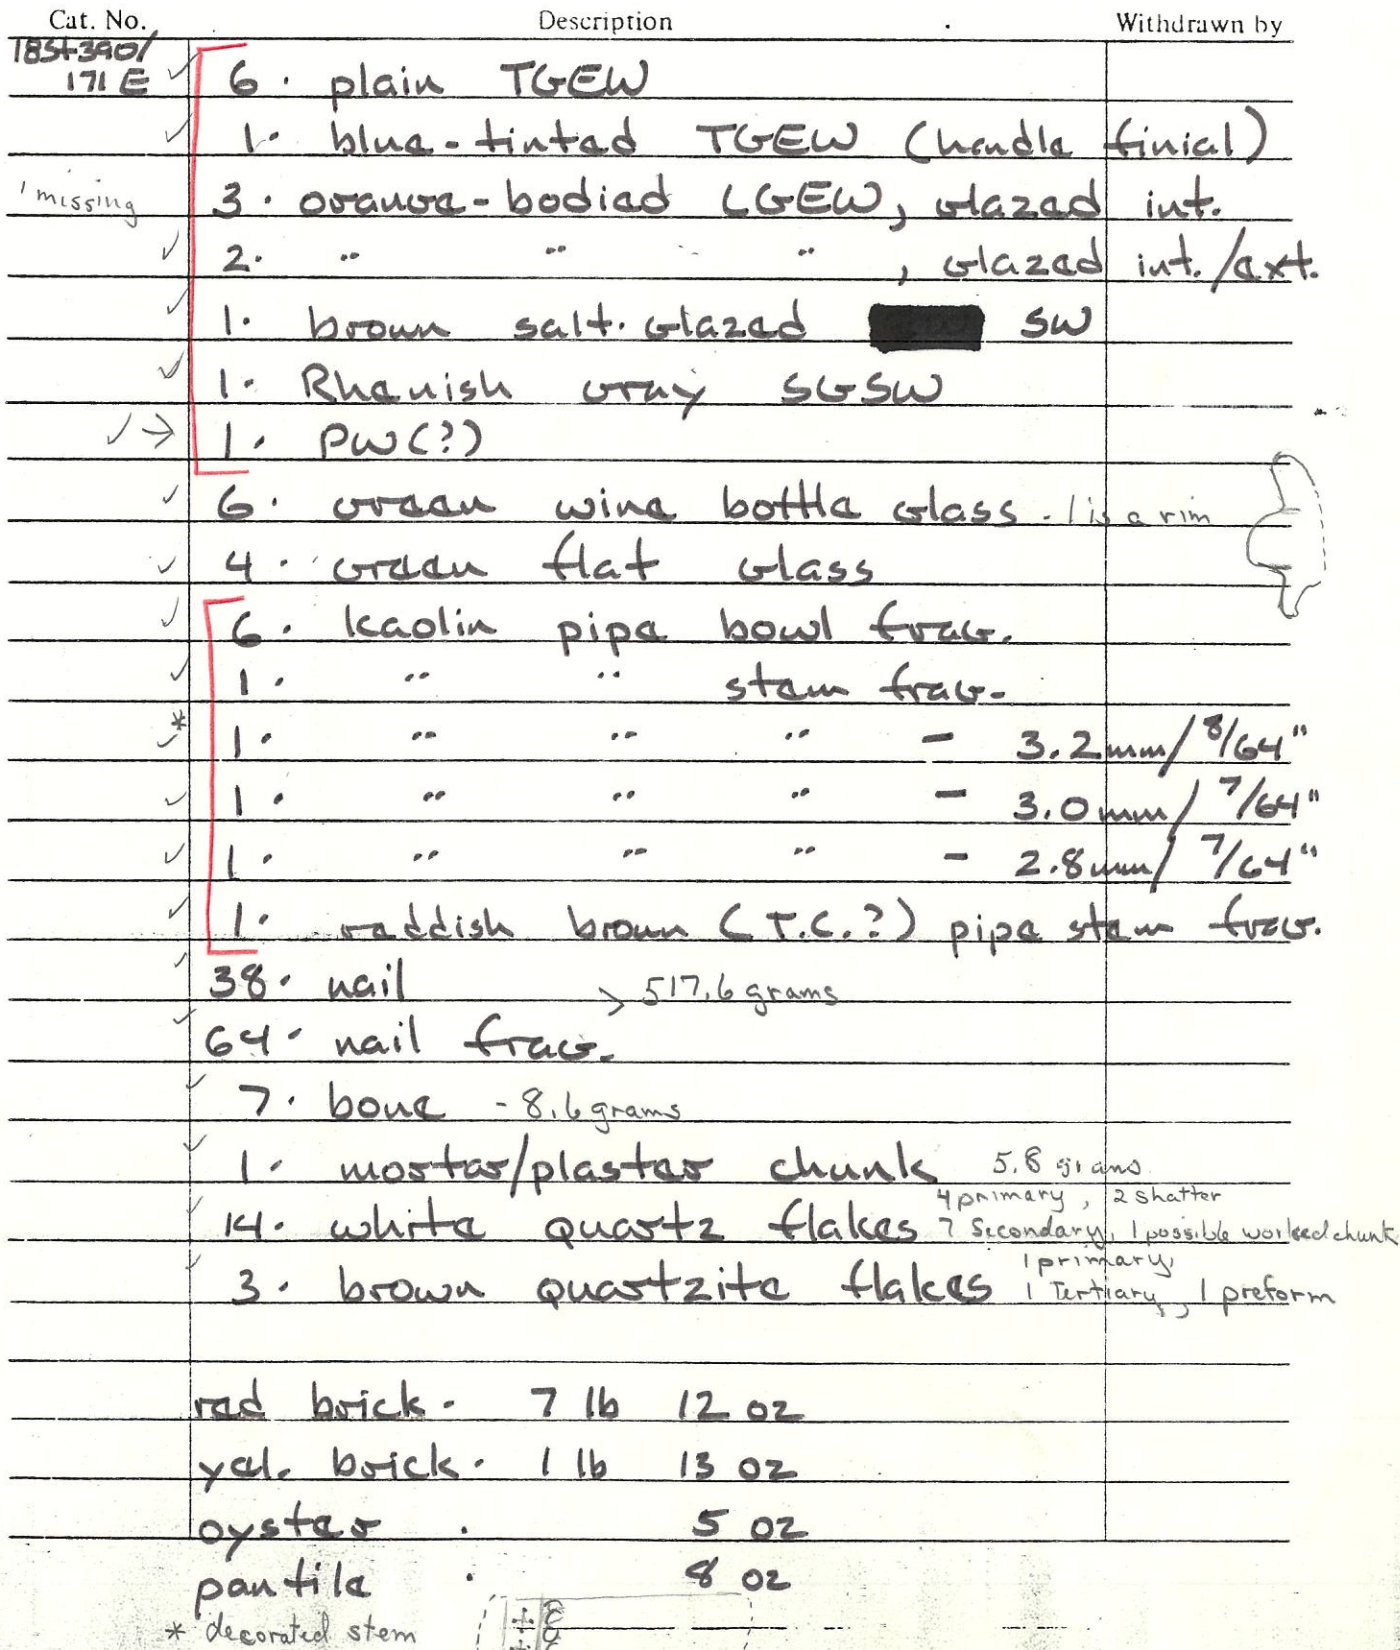 Cat. No. Description Withdrawn by
18ST390/
171E ✓ 6 · plain TGEW
✓ 1 · blue-tinted TGEW (handle finial)
1 missing 3 · orange-bodied LGEW, glazed int.
✓ 2 · " " " , glazed int./ext.
✓ 1 · brown salt-glazed SW
✓ 1 · Rhenish gray SGSW
✓ → 1 · PW(?)
✓ 6 · green wine bottle glass - 1 is a rim
✓ 4 · green flat glass
✓ 6 · kaolin pipe bowl frag.
✓ 1 · " " stem frag.
✓* 1 · " " " - 3.2mm/ 8/64"
✓ 1 · " " " - 3.0mm/ 7/64"
✓ 1 · " " " - 2.8mm/ 7/64"
✓ 1 · reddish brown (T.C.?) pipe stem frag.
✓ 38 · nail > 517.6 grams
✓ 64 · nail frag.
✓ 7 · bone - 8.6 grams
✓ 1 · mortar/plaster chunk 5.8 grams
4 primary, 2 shatter
✓ 14 · white quartz flakes 7 Secondary, 1 possible worked chunk
1 primary,
✓ 3 · brown quartzite flakes 1 Tertiary, 1 preform
red brick · 7 lb 12 oz
yel. brick · 1 lb 13 oz
oyster · 5 oz
pantile · 8 oz
* decorated stem